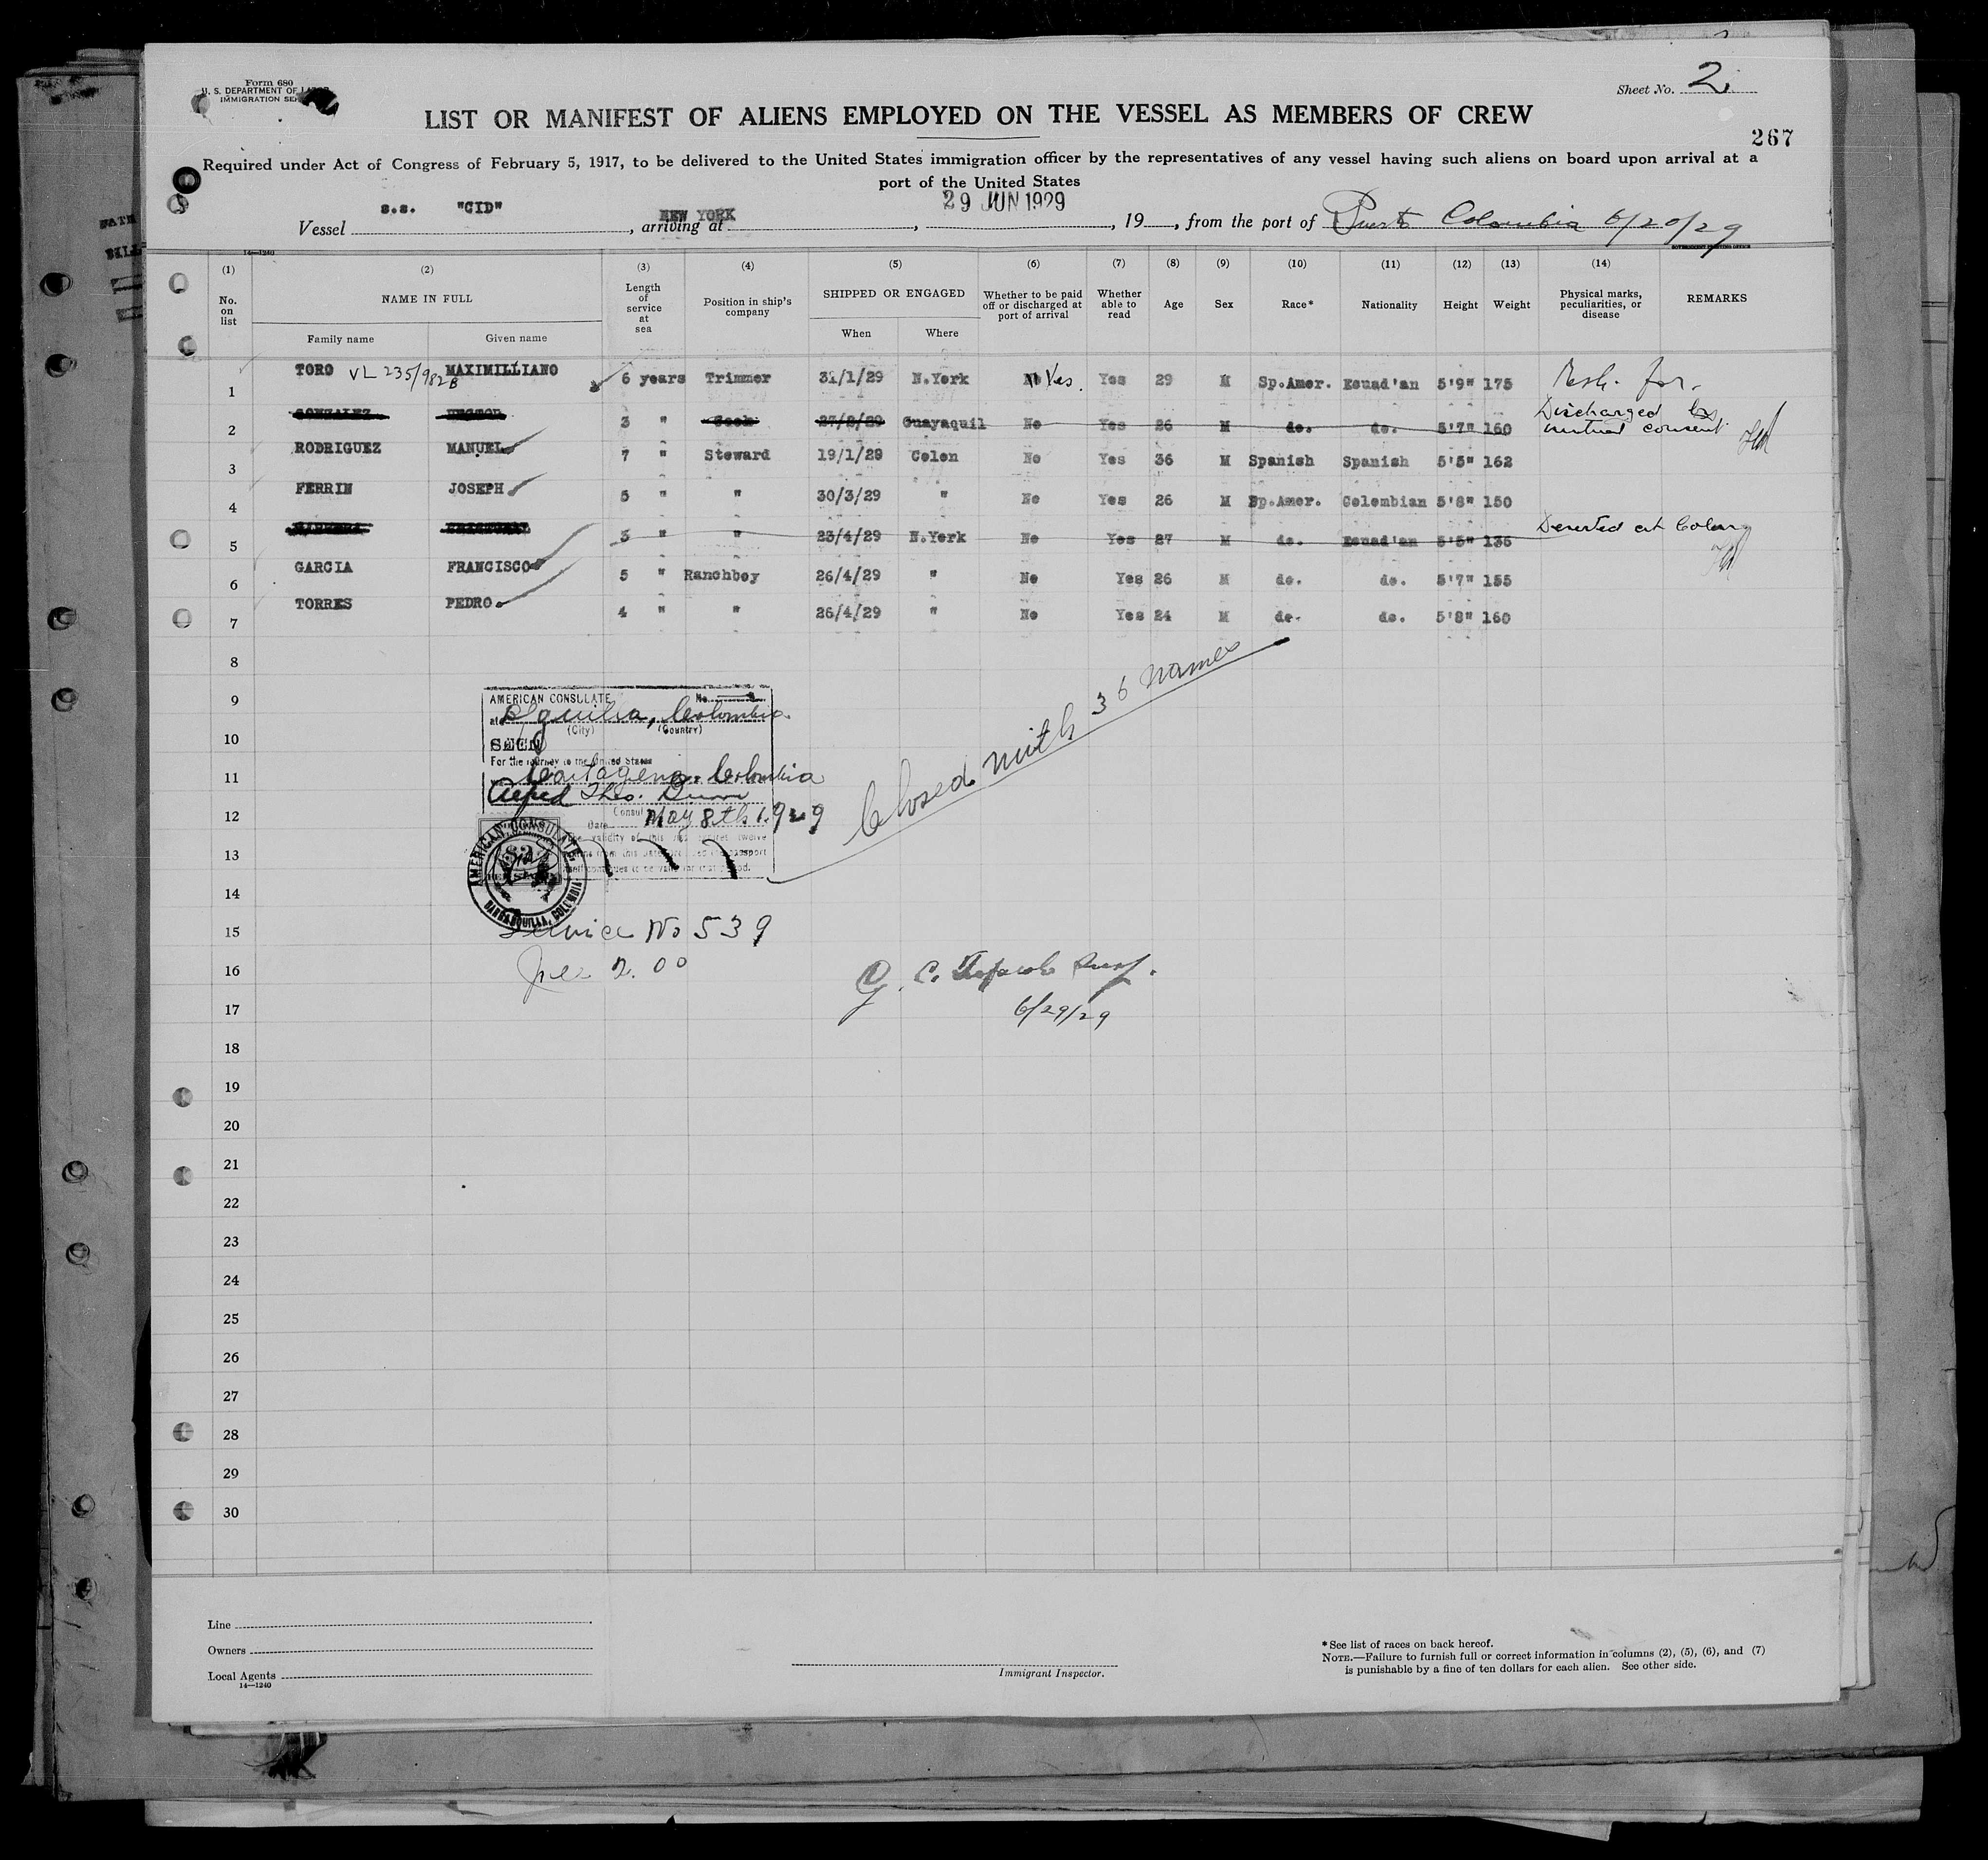 Form 680
U. S. DEPARTMENT OF LABOR
IMMIGRATION SER
Sheet No. 2.
LIST OR MANIFEST OF ALIENS EMPLOYED ON THE VESSEL AS MEMBERS OF CREW
267
Required under Act of Congress of February 5, 1917, to be delivered to the United States immigration officer by the representatives of any vessel having such aliens on board upon arrival at a
port of the United States
Vessel s.s. "CID", arriving at NEW YORK, 29 JUN 1929, 19, from the port of Puerto Colombia 6/20/29
14—1240
(1) (2) (3) (4) (5) (6) (7) (8) (9) (10) (11) (12) (13) (14)
No. on list NAME IN FULL Length of service at sea Position in ship's company SHIPPED OR ENGAGED Whether to be paid off or discharged at port of arrival Whether able to read Age Sex Race* Nationality Height Weight Physical marks, peculiarities, or disease REMARKS
Family name Given name When Where
1 TORO VL 235/982B MAXIMILLIANO 6 years Trimmer 31/1/29 N.York No Yes. Yes 29 M Sp.Amer. Ecuad'an 5'9" 175
2 GONZALEZ HECTOR 3 " Cook 27/2/29 Guayaquil No Yes 26 M do. do. 5'7" 160 Discharged by mutual consent
3 RODRIGUEZ MANUEL 7 " Steward 19/1/29 Colon No Yes 36 M Spanish Spanish 5'5" 162
4 FERRIN JOSEPH 5 " " 30/3/29 " No Yes 26 M Sp.Amer. Colombian 5'8" 150
5 3 " " 23/4/29 N.York No Yes 27 M do. Ecuad'an 5'5" 135 Deserted at Colon
6 GARCIA FRANCISCO 5 " Ranchboy 26/4/29 " No Yes 26 M do. do. 5'7" 155
7 TORRES PEDRO 4 " " 26/4/29 " No Yes 24 M do. do. 5'8" 160
8
9
10
11
12
13
14
15
16
17
18
19
20
21
22
23
24
25
26
27
28
29
30
AMERICAN CONSULATE No.
at B/quilla, Colombia
(City) (Country)
SEEN
For the journey to the United States
via Cartagena, Colombia
Alfred Theo. Burri
Consul
Date May 8th 1929
AMERICAN CONSULATE
BARRANQUILLA, COLOMBIA
Service No 539
Fee 2.00
Closed with 36 names
6/29/29
Line
Owners
Local Agents
14—1240
Immigrant Inspector.
* See list of races on back hereof.
NOTE.—Failure to furnish full or correct information in columns (2), (5), (6), and (7)
is punishable by a fine of ten dollars for each alien. See other side.